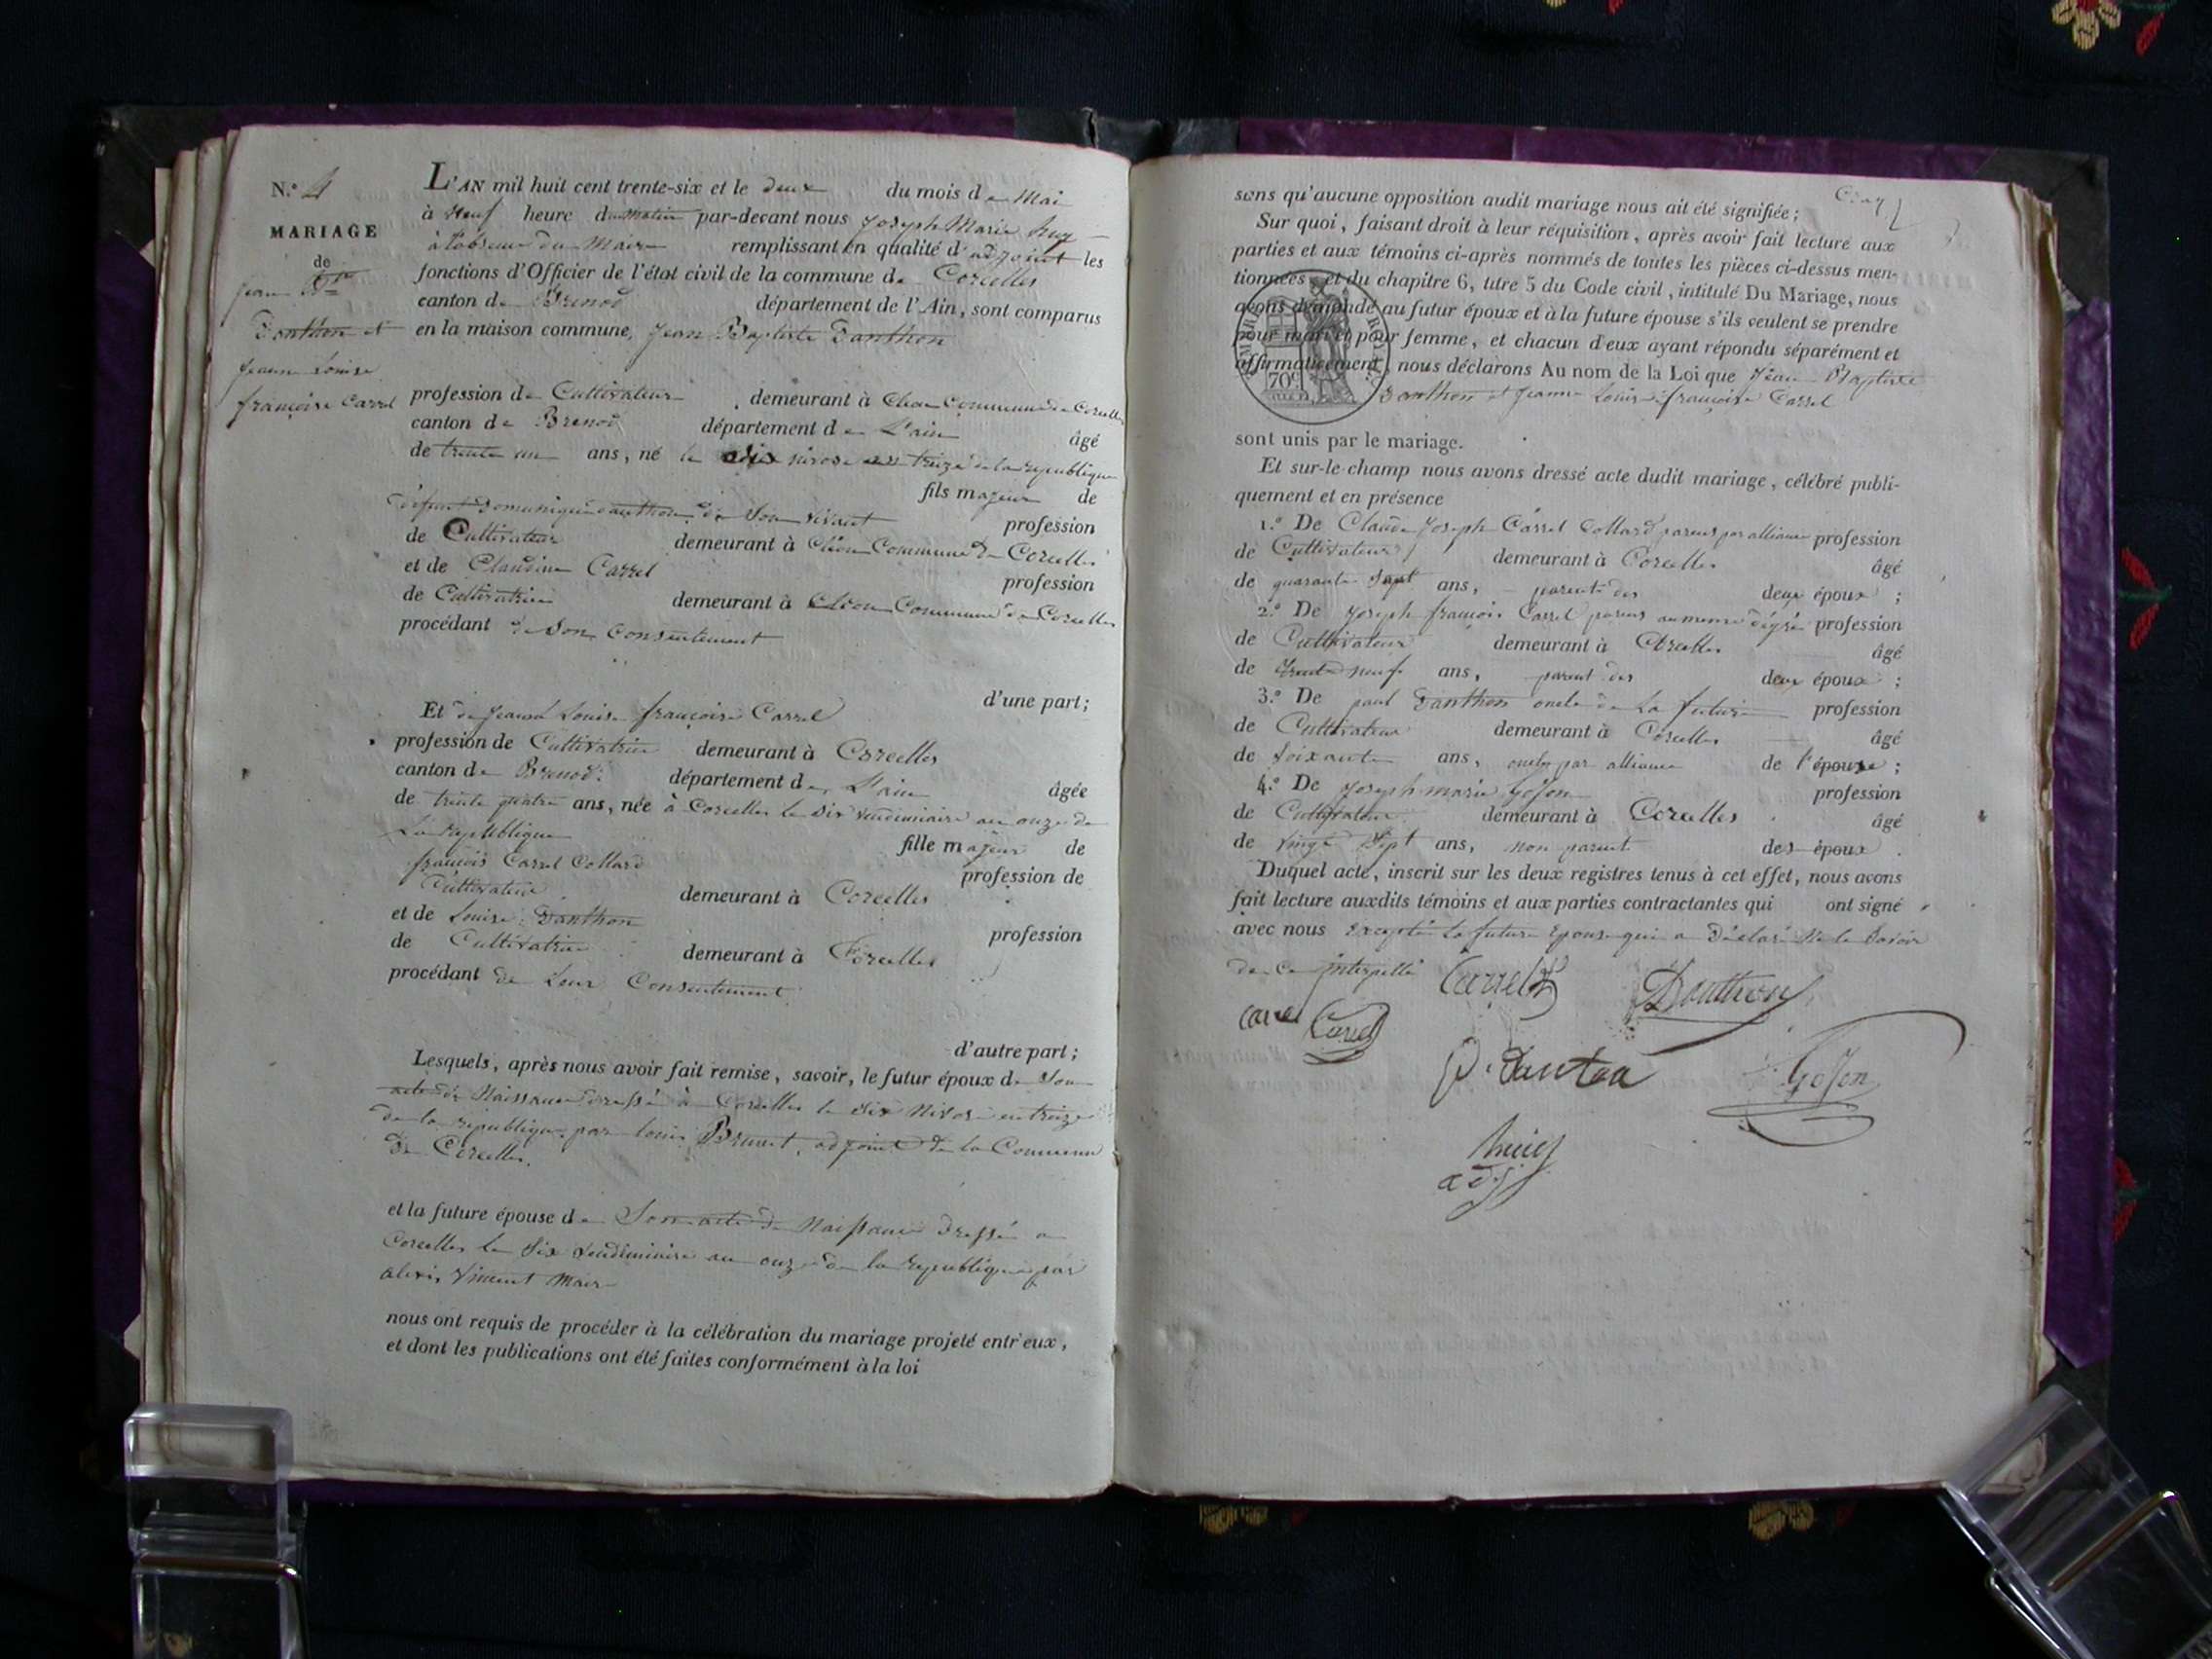 N.º 4
MARIAGE
de
Jean Bte
Danthon et
Jeanne Louise
françoise Carrel
L'AN mil huit cent trente-six et le deux du mois de Mai
à neuf heure du matin par-devant nous Joseph Marie huy
à l'absence du Maire remplissant en qualité d'adjoint les
fonctions d'Officier de l'état civil de la commune de Corcelles
canton de Brenod département de l'Ain, sont comparus
en la maison commune, Jean Baptiste Danthon
profession de Cultivateur demeurant à Commune de Corcelles
canton de Brenod département de L'ain âgé
de trente un ans, né le dix nivose an treize de la republique
fils majeur de
défunt Dominique danthon de Son vivant profession
de Cultivateur demeurant à Cléon Commune de Corcelles
et de Claudine Carrel profession
de Cultivatrice demeurant à Cléon Commune de Corcelles
procédant de Son Consentement
d'une part;
Et de Jeanne Louise françoise Carrel
profession de Cultivatrice demeurant à Corcelles
canton de Brenod. département de L'ain âgée
de trente quatre ans, née à Corcelles le Six vendimiaire an onze de
La republique
fille majeur de
françois Carrel Collard profession de
Cultivateur demeurant à Corcelles
et de Louise Danthon profession
de Cultivatrice demeurant à Corcelles
procédant de Leur Consentement
d'autre part;
Lesquels, après nous avoir fait remise, savoir, le futur époux de Son
acte de Naissance dressé à Corcelles le dix Nivose an treize
de la republique par louis Brunet, adjoint de la Commune
de Corcelles.
et la future épouse de Son acte de Naissance dressé a
Corcelles le Six vendimiaire an onze de la republique par
alexis Vincent Maire
nous ont requis de procéder à la célébration du mariage projeté entr'eux,
et dont les publications ont été faites conformément à la loi
sans qu'aucune opposition audit mariage nous ait été signifiée;
Sur quoi, faisant droit à leur réquisition, après avoir fait lecture aux
parties et aux témoins ci-après nommés de toutes les pièces ci-dessus men-
tionnées, et du chapitre 6, titre 5 du Code civil, intitulé Du Mariage, nous
avons demandé au futur époux et à la future épouse s'ils veulent se prendre
pour mari et pour femme, et chacun d'eux ayant répondu séparément et
affirmativement, nous déclarons Au nom de la Loi que Jean Baptiste
Danthon et Jeanne Louise françoise Carrel
70c
sont unis par le mariage.
Et sur-le-champ nous avons dressé acte dudit mariage, célébré publi-
quement et en présence
1.º De Claude Joseph Carrel Collard parent par alliance profession
de Cultivateur demeurant à Corcelles âgé
de quarante Sept ans, parent des deux époux;
2.º De Joseph françois Carrel parent au meme dégré profession
de Cultivateur demeurant à Corcelles âgé
de trente neuf ans, parent des deux époux;
3.º De paul Danthon oncle de La future profession
de Cultivateur demeurant à Corcelles âgé
de Soixante ans, oncle par alliance de l'épouse;
4.º De Joseph marie Goson profession
de Cultivateur demeurant à Corcelles âgé
de vingt Sept ans, non parent des époux.
Duquel acte, inscrit sur les deux registres tenus à cet effet, nous avons
fait lecture auxdits témoins et aux parties contractantes qui ont signé
avec nous excepté la future épouse qui a déclaré Ne le Savoir
de ce interpellé Carrel Danthon
Carrel Carrel
P. Danton Goson
huy
adj